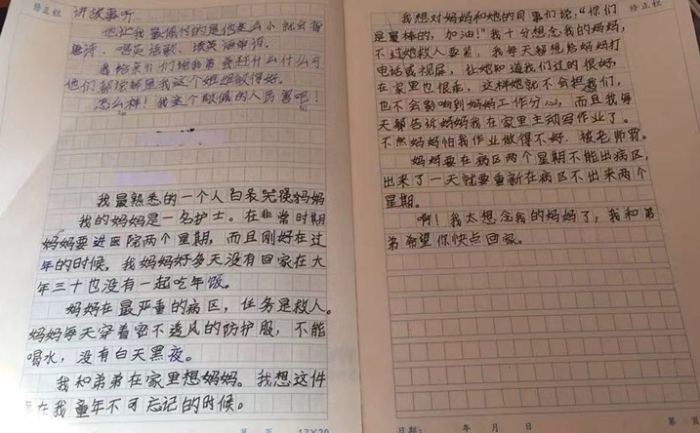 讲故事听。
修正栏
唐诗、唱英语歌、读英语单词。
怎么样!我这个敬佩的人厉害吧!
我最熟悉的一个人白衣天使妈妈
我的妈妈是一名护士。在非常时期
妈妈要进医院两个星期,而且刚好在过
年的时候。我妈妈好多天没有回家在大
年三十也没有一起吃年饭。
妈妈在最严重的病区,任务是救人。
妈妈每天穿着密不透风的防护服,不能
喝水,没有白天黑夜。
我和弟弟在家里想妈妈。我想这件
在我童年不可忘记的时候。
第 页
17×20
修正栏
我想对妈妈和她的同事们说,“你们
是最棒的,加油!”我十分想念我的妈妈,
不过她救人要紧,我每天都想给妈妈打
电话或视屏,让她知道我们过的很好,
在家里也很乖,这样她就不会担我们,
也不会影响到妈妈工作分心,而且我每
天都告诉妈妈我在家里主动写作业了。
不然妈妈怕我作业做得不好,被老师骂。
妈妈要在病区两个星期不能出病区,
出来了一天就要重新在病区不出来两个
星期。
啊!我太想念我的妈妈了,我和弟
弟希望你快点回家。
日期: 年 月 日
第 页